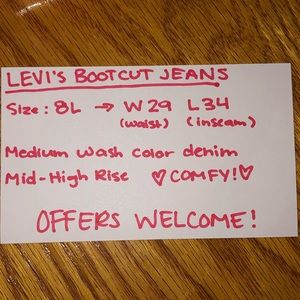 LEVI'S BOOTCUT JEANS
Size: 8L → W29 L34
(waist) (inseam)
Medium wash color denim
Mid-High Rise ♡COMFY!♡
OFFERS WELCOME!